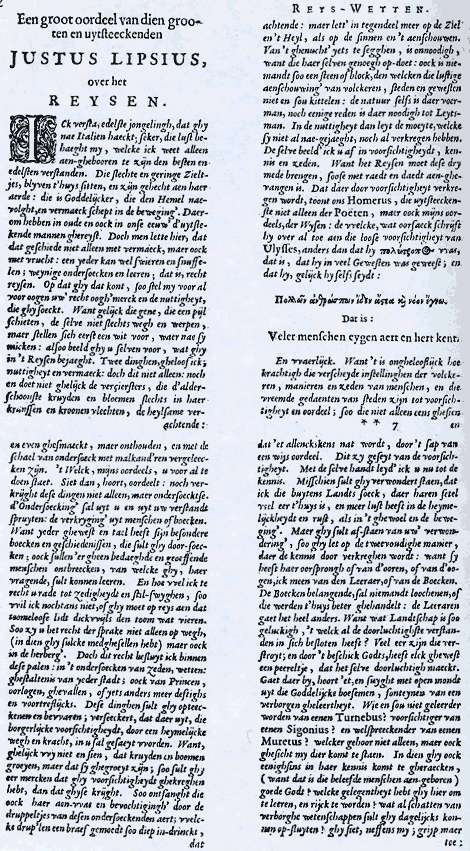 Een groot oordeel van dien groo-
ten en uytsteeckenden
JUSTUS LIPSIUS,
over het
REYSEN.
ICk versta, edelste jongelingh, dat ghy
nae Italien haeckt; seker, die lust be-
haeght my, welcke ick weet alleen
aen-ghebooren te zijn den besten en
edelsten verstanden. Die slechte en geringe Zielt-
jes, blyven t'huys sitten, en zijn gehecht aen haer
aerde: die is Goddelijcker, die den Hemel nae-
volght, en vermaeck schept in de beweging'. Daer-
om hebben in oude en oock in onse eeuw' d'uytste-
kende mannen ghereyst. Doch men lette hier, dat
dat geschiede niet alleen met vermaeck, maer oock
met vrucht: een yeder kan wel swieren en snuffe-
len; weynige ondersoecken en leeren; dat is, recht
reysen. Op dat ghy dat kont, soo stel my voor al
voor oogen uw' recht oogh'merck en de nuttigheyt,
die ghy soeckt. Want gelijck die gene, die een pijl
schieten, de selve niet slechts wegh en werpen,
maer stellen sich eerst een wit voor, waer nae sy
micken: alsoo beeld ghy u selven voor, wat ghy
in 't Reysen bejaeght. Twee dinghen, geloof ick,
nuttigheyt en vermaeck: doch dit niet alleen: noch
en doet niet ghelijck de vercierfters, die d'alder-
schoonste kruyden en bloemen slechts in haer
kranssen en kroonen vlechten, de heylsame ver-
achtende:
en even ghesmaeckt, maer onthouden, en met de
schael van ondersoeck met malkand'ren vergeleec-
ken zijn. 't Welck, mijns oordeels, u voor al te
doen staet. Siet dan, hoort, oordeelt: noch ver-
krijght dese dingen niet alleen, maer ondersoecktse.
d'Ondersoecking' sal uyt u en uyt uw verstandt
spruyten: de verkryging' uyt menschen of boecken.
Want yeder ghewest en tael heeft sijn besondere
boecken en geschiedenissen, die sult ghy door-soec-
ken; oock sullen 'er gheen bedaeghde en groeffende
menschen ontbreecken, van welcke ghy, haer
vragende, sult konnen leeren. En hoe vvel ick te
recht u rade tot zedigheydt en stil-swyghen, soo
vvil ick nochtans niet, of ghy moet op reys aen dat
toomeloose lidt dickvvijls den toom wat vieren.
Soo zy u bet recht der sprake niet alleen op wegh,
(in dien ghy sulcke medghesellen hebt) maer oock
in de herberg'. Doch dat recht besluyt ick binnen
dese palen: in 't ondersoecken van zeden, wetten:
ghestaltenis van yeder stadt; oock van Princen,
oorlogen, ghevallen, of yets anders meer destighs
en voortreflijcks. Dese dinghen sult ghy opteec-
ckenen en bewaren; verseeckert, dat daer uyt, die
borgerlijcke voorsichtigheydt, door een heymelijcke
wegh en kracht, in u sal gesaeyt vvorden. Want,
ghelijck vvy niet en sien, dat kruyden en boomen
groeyen, maer dat sy ghegroeyt zijn; soo sult ghy
eer mercken dat ghy voorsichtigheydt ghekreghen
hebt, dan dat ghyse krijght. Soo ontfanght die
oock haer aen-vvas en bevochtigingh' door de
druppeltjes van desen ondersoeckenden aert; vvelc-
ke drup'len een braef gemoedt soo diep in-drinckt,
dat
REYS-WETTEN.
achtende: maer lett' in tegendeel meer op de Ziel
en 't Heyl, als op de sinnen en 't aenschouwen.
Van 't ghenucht' yets te segghen, is onnoodigh,
want die haer selven genoegh op-doet: oock is nie-
mandt soo een steen of block, den welcken die lustige
aenschouwing' van volckeren, steden en gewesten
niet en sou kittelen: de natuer selfs is daer voer-
man, noch eenige reden is daer noodigh tot Leyts-
man. In de nuttigheyt dan leyt de moeyte, welcke
sy niet al nae-gejaaght, noch al verkregen hebben.
De selve beeld' ick u af in voorsichtigheydt, ken-
nis en zeden. Want het Reysen moet dese dry
mede brengen, soose met raedt en daedt aen-ghe-
vangen is. Dat daer door voorsichtigheyt verkre-
gen wordt, toont ons Homerus, die uytsteecken-
ste niet alleen der Poëten, maer oock mijns oor-
deels, der Wysen: de vvelcke, wat oorsaeck schrijft
hy over al toe aen die loose voorsichtigheyt van
Ulysses, anders dan dat hy πολύτροπ was,
dat is, dat hy in veel Gewesten was geweest; en
dat hy, gelijck hy selfs seydt:
Πολλῶν ἀνθρώπων ἴδεν ἄστεα καὶ νόον ἔγνω.
Dat is:
Veler menschen eygen aert en hert kent.
En vvaerlijck. Want 't is onghelooflijck hoe
krachtigh die verscheyde instellinghen der volcke-
ren, manieren en zeden van menschen, en die
vreemde gedaenten van steden zijn tot voorsich-
tigheyt en oordeel; soo die niet alleen eens ghesien
* * 7 en
dat 'et allenckskens nat wordt, door 't sap van
een wijs oordeel. Dit zy geseyt van de voorsich-
tigheyt. Met de selve handt leyd' ick u nu tot de
kennis. Misschien sult ghy verwondert staen, dat
ick die buytens Landts soeck, daer haren setel
veel eer t'huys is, en meer lust heeft in de heyme-
lijckheydt en rust, als in 't ghewoel en de bewe-
ging'. Maer ghy sult af-staen van uw' verwon-
dering', soo ghy let op de tweevoudighe manier,
daer de kennis door verkreghen wordt: want sy
heeft haer oorsprongh of van d'ooren, of van d'oo-
gen, ick meen van den Leeraer, of van de Boecken.
De Boecken belangende, sal niemandt loochenen, of
die werden t'huys beter ghehandelt: de Leeraren
gaet het heel anders. Want wat Landschap is soo
geluckigh, 't welck al de doorluchtighste verstan-
den in sich besloten heeft? Veel eer zijn die ver-
stroyt; en door 't beschick Gods, heeft elck ghewest
een peereltje, dat het selve doorluchtigh maeckt.
Gaet daer by, hoort 'et, en suyght met open mondt
uyt die Goddelijcke boesemen, fonteynen van een
verborgen gheleertheyt. Wie en sou niet geleerder
worden van eenen Turnebus? voorsichtiger van
eenen Sigonius? en welspreeckender van eenen
Muretus? welcker gehoor niet alleen, maer ock
ghesicht my dier komt te staen. In dien ghy oock
eenighsins in haer kennis komt te gheraecken,
(want dat is die beleefde menschen aen-geboren)
goede Godt! welcke gelegentheyt hebt ghy hier om
te leeren, en rijck te worden! wat al schatten van
verborghe wetenschappen sult ghy dagelijcks kon-
nen op-sluyten! ghy siet, neffens my; grijp maer
toe: